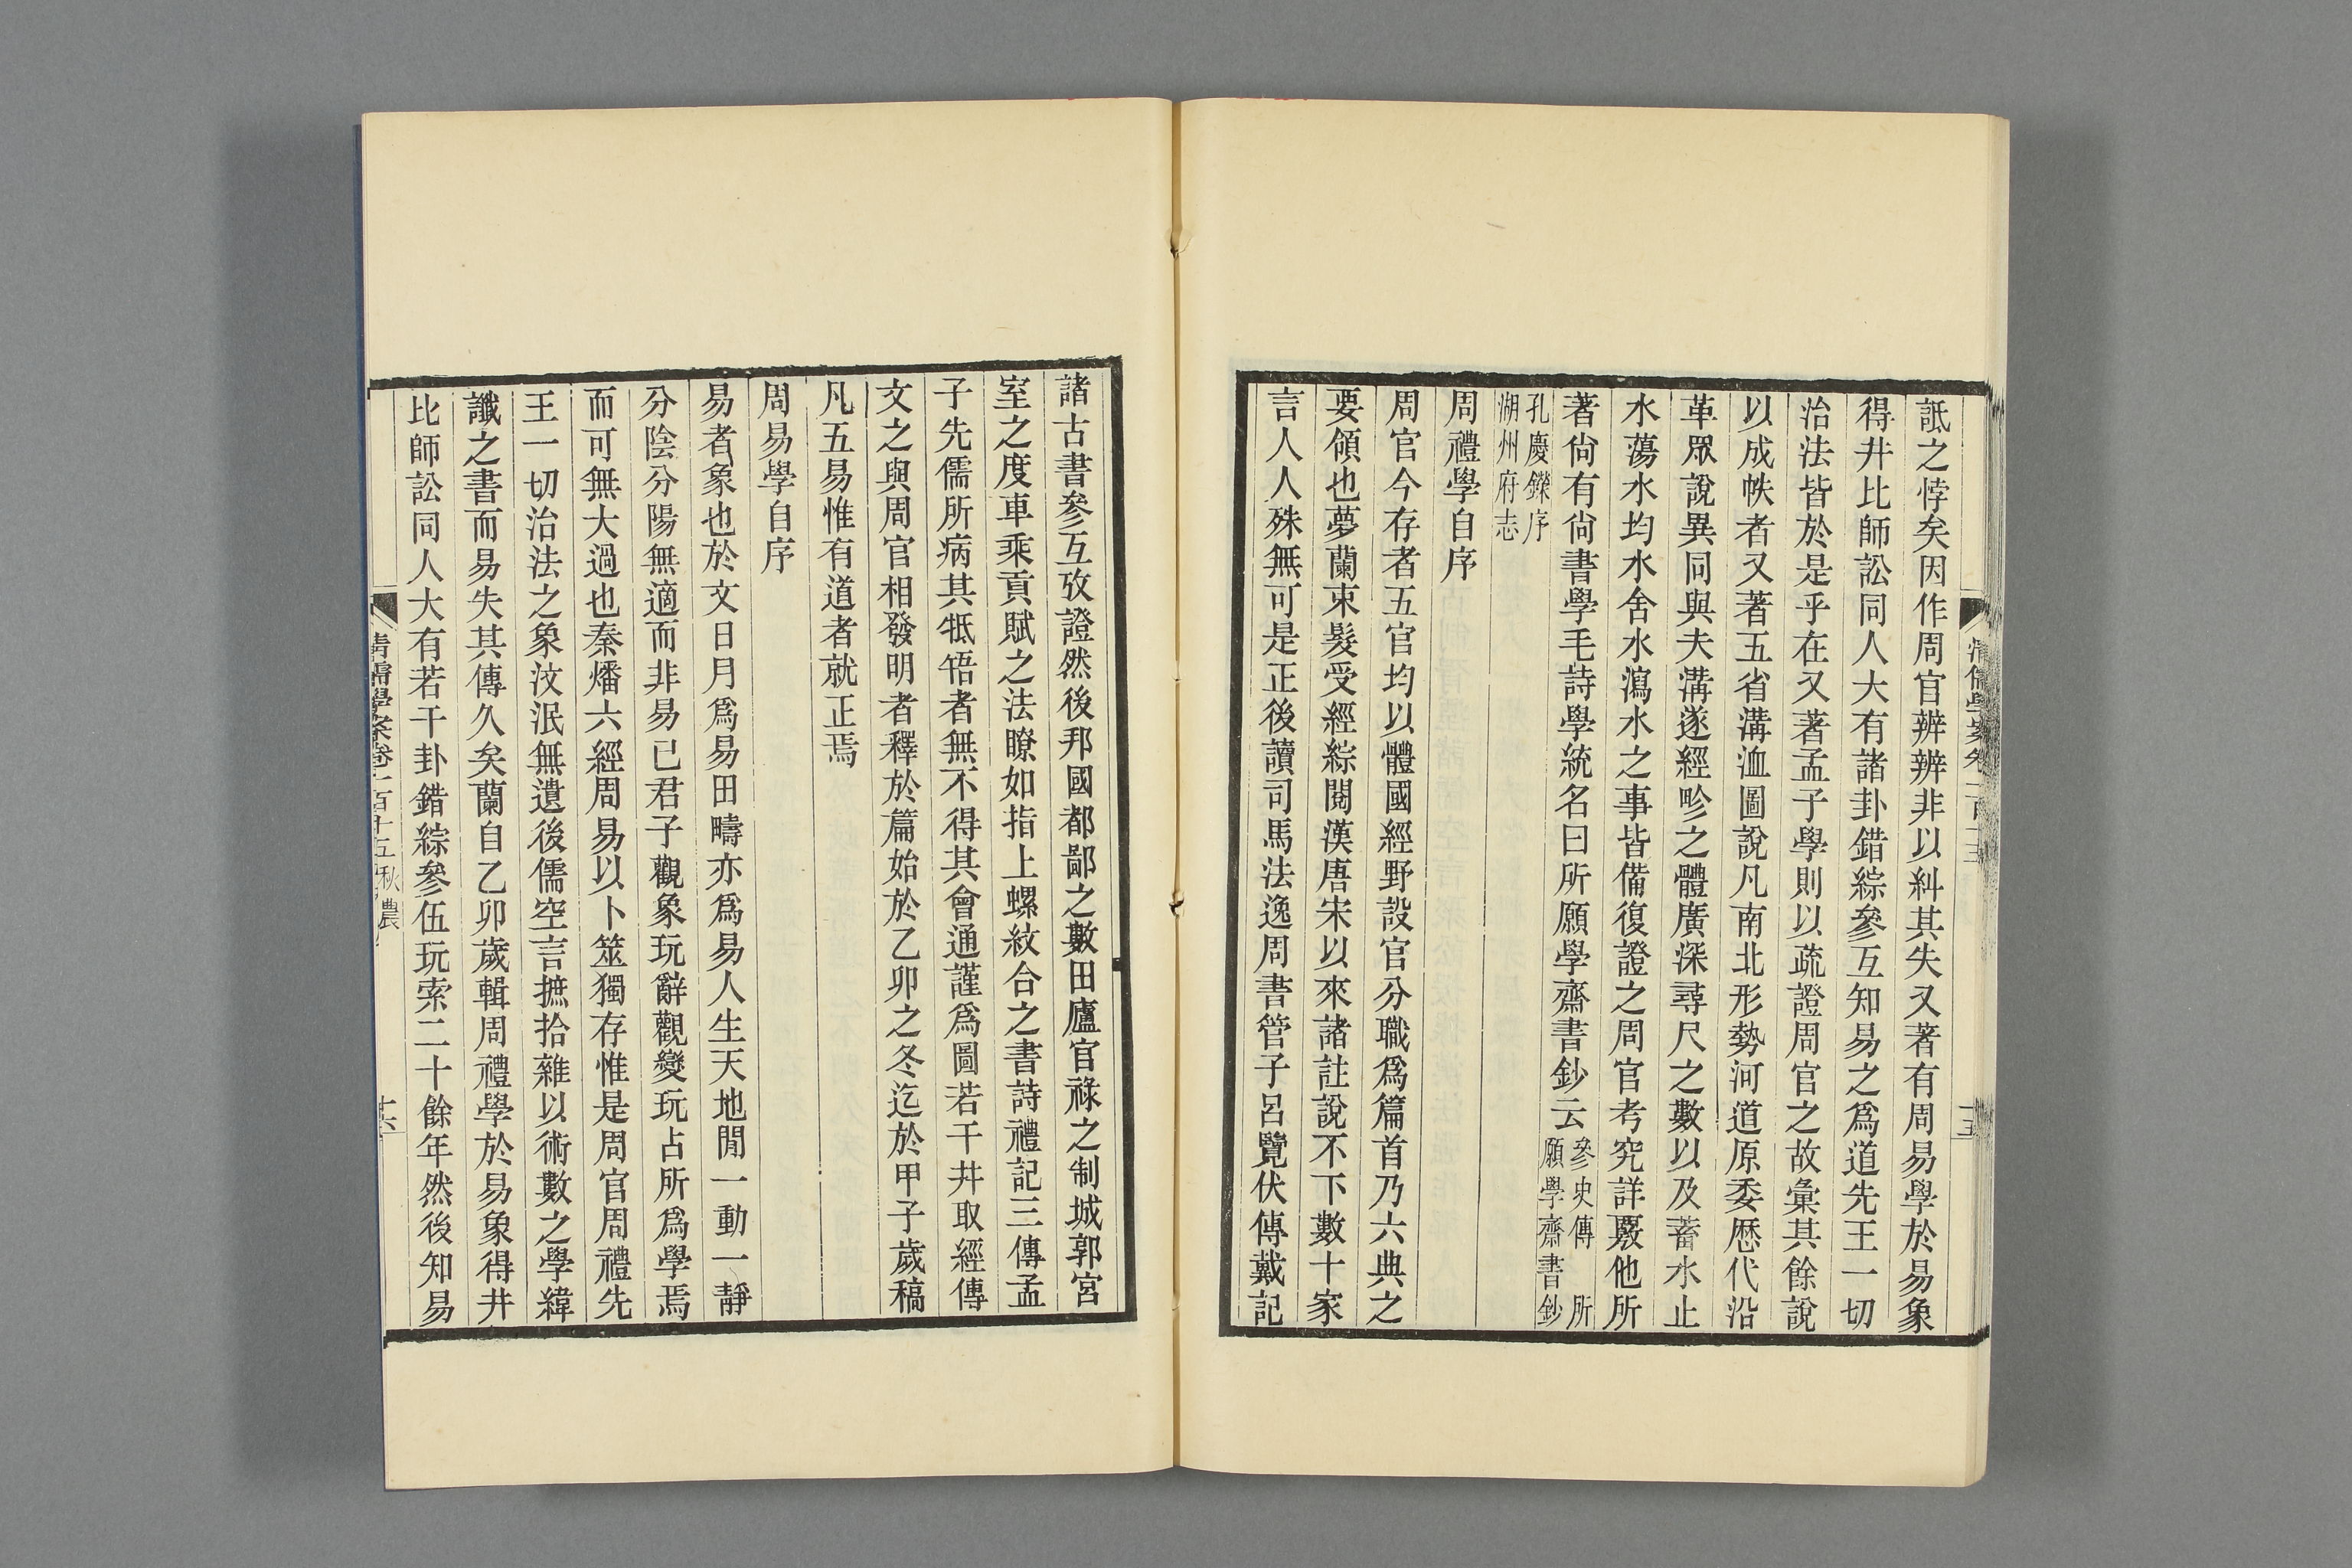 詆之悖矣因作周官辨辨非以糾其失又著有周易學於易象
得井比師訟同人大有諸卦錯綜參互知易之爲道先王一切
治法皆於是乎在又著孟子學則以疏證周官之故彙其餘說
以成帙者又著五省溝洫圖說凡南北形勢河道原委歷代沿
革眾說異同與夫溝遂經畛之體廣深尋尺之數以及蓄水止
水蕩水均水舍水瀉水之事皆備復證之周官考究詳覈他所
著尙有尙書學毛詩學統名曰所願學齋書鈔云參史傳 所
願學齋書鈔
孔慶鑅序
湖州府志
周禮學自序
周官今存者五官均以體國經野設官分職爲篇首乃六典之
要領也夢蘭束髮受經綜閱漢唐宋以來諸註說不下數十家
言人人殊無可是正後讀司馬法逸周書管子呂覽伏傳戴記
諸古書參互攷證然後邦國都鄙之數田廬官祿之制城郭宮
室之度車乘貢賦之法瞭如指上螺紋合之書詩禮記三傳孟
子先儒所病其牴牾者無不得其會通謹爲圖若干井取經傳
文之與周官相發明者釋於篇始於乙卯之冬迄於甲子歲稿
凡五易惟有道者就正焉
周易學自序
易者象也於文日月爲易田疇亦爲易人生天地閒一動一靜
分陰分陽無適而非易已君子觀象玩辭觀變玩占所爲學焉
而可無大過也秦燔六經周易以卜筮獨存惟是周官周禮先
王一切治法之象汶泯無遺後儒空言摭拾雜以術數之學緯
讖之書而易失其傳久矣蘭自乙卯歲輯周禮學於易象得井
比師訟同人大有若干卦錯綜參伍玩索二十餘年然後知易
清儒學案卷一百十五秋農
十六